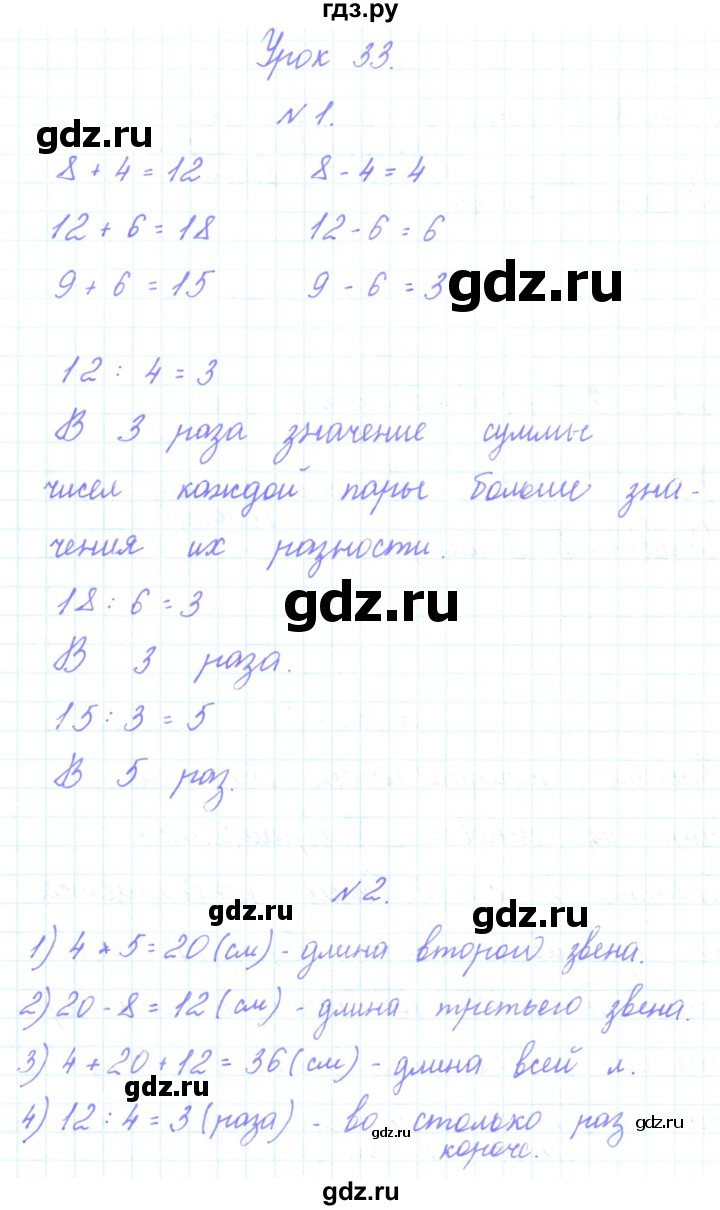 гдз.ру
Урок 33.
№1.
gdz.ru
8+4=12 8-4=4
12+6=18 12-6=6
9+6=15 9-6=3
gdz.ru
12:4=3
В 3 раза значение суммы
чисел каждой пары больше зна-
чения их разности.
gdz.ru
18:6=3
В 3 раза.
15:3=5
В 5 раз.
№2.
gdz.ru gdz.ru
1) 4*5=20(см)-длина второго звена.
2) 20-8=12(см)-длина третьего звена.
3) 4+20+12=36(см)-длина всей л.
gdz.ru
4) 12:4=3(раза)-во столько раз
gdz.ru gdz.ru
короче.
gdz.ru